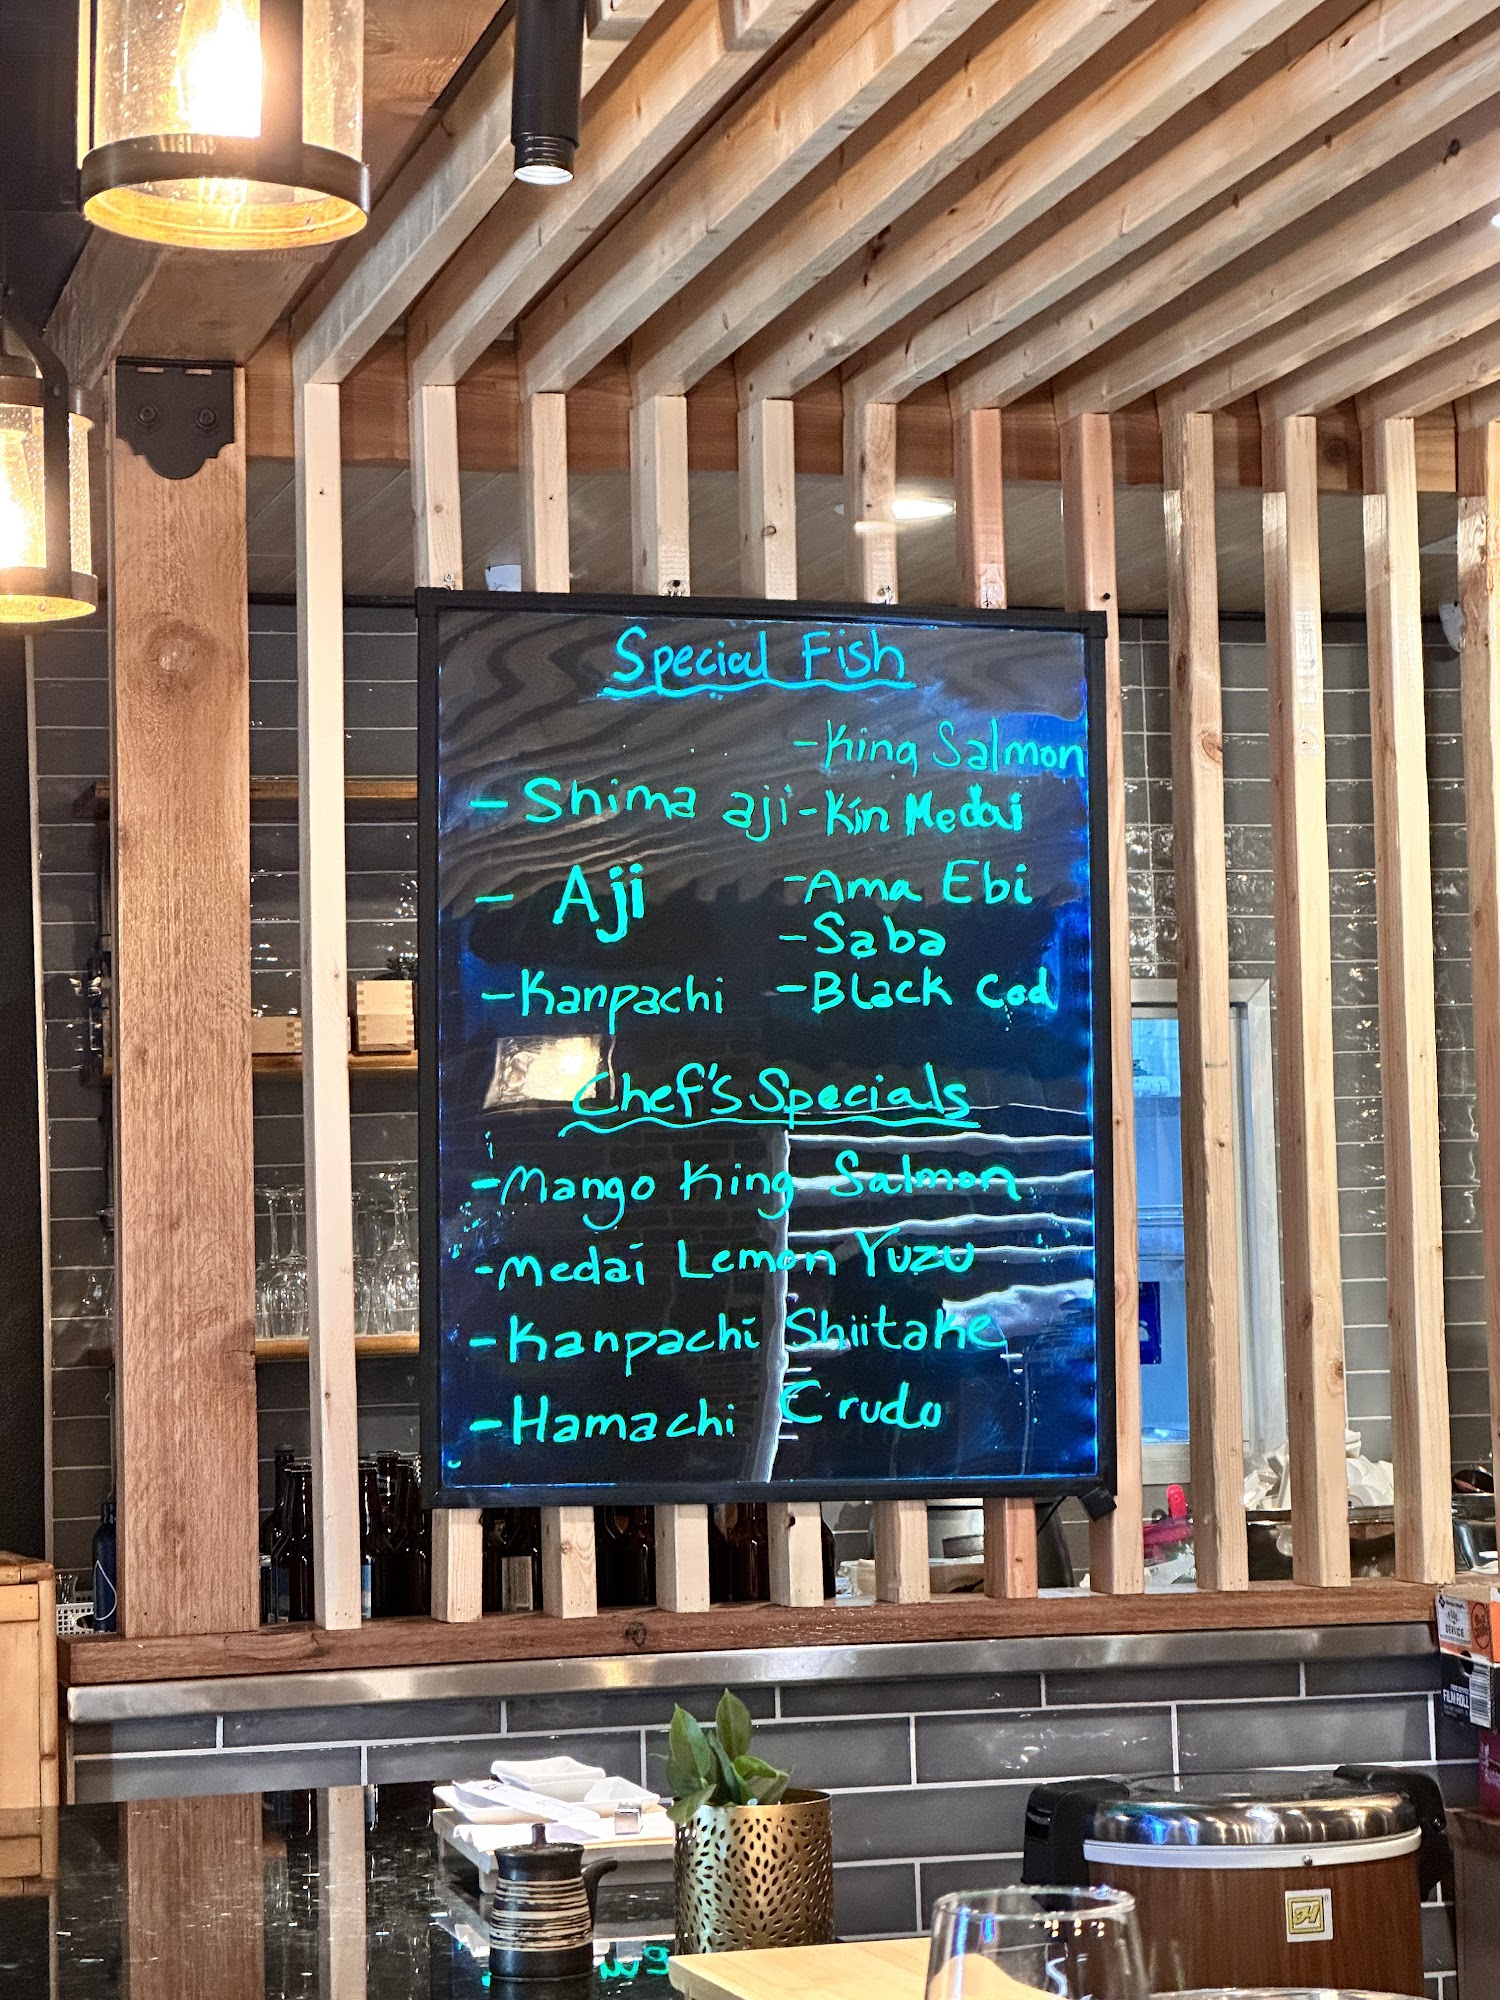 Special Fish
- King Salmon
- Shima aji
- Kin Medai
- Aji
- Ama Ebi
- Saba
- Kanpachi
- Black Cod
Chef's Specials
- Mango King Salmon
- Medai Lemon Yuzu
- Kanpachi Shiitake
- Hamachi Crudo
SERVICE
FILM ROLL